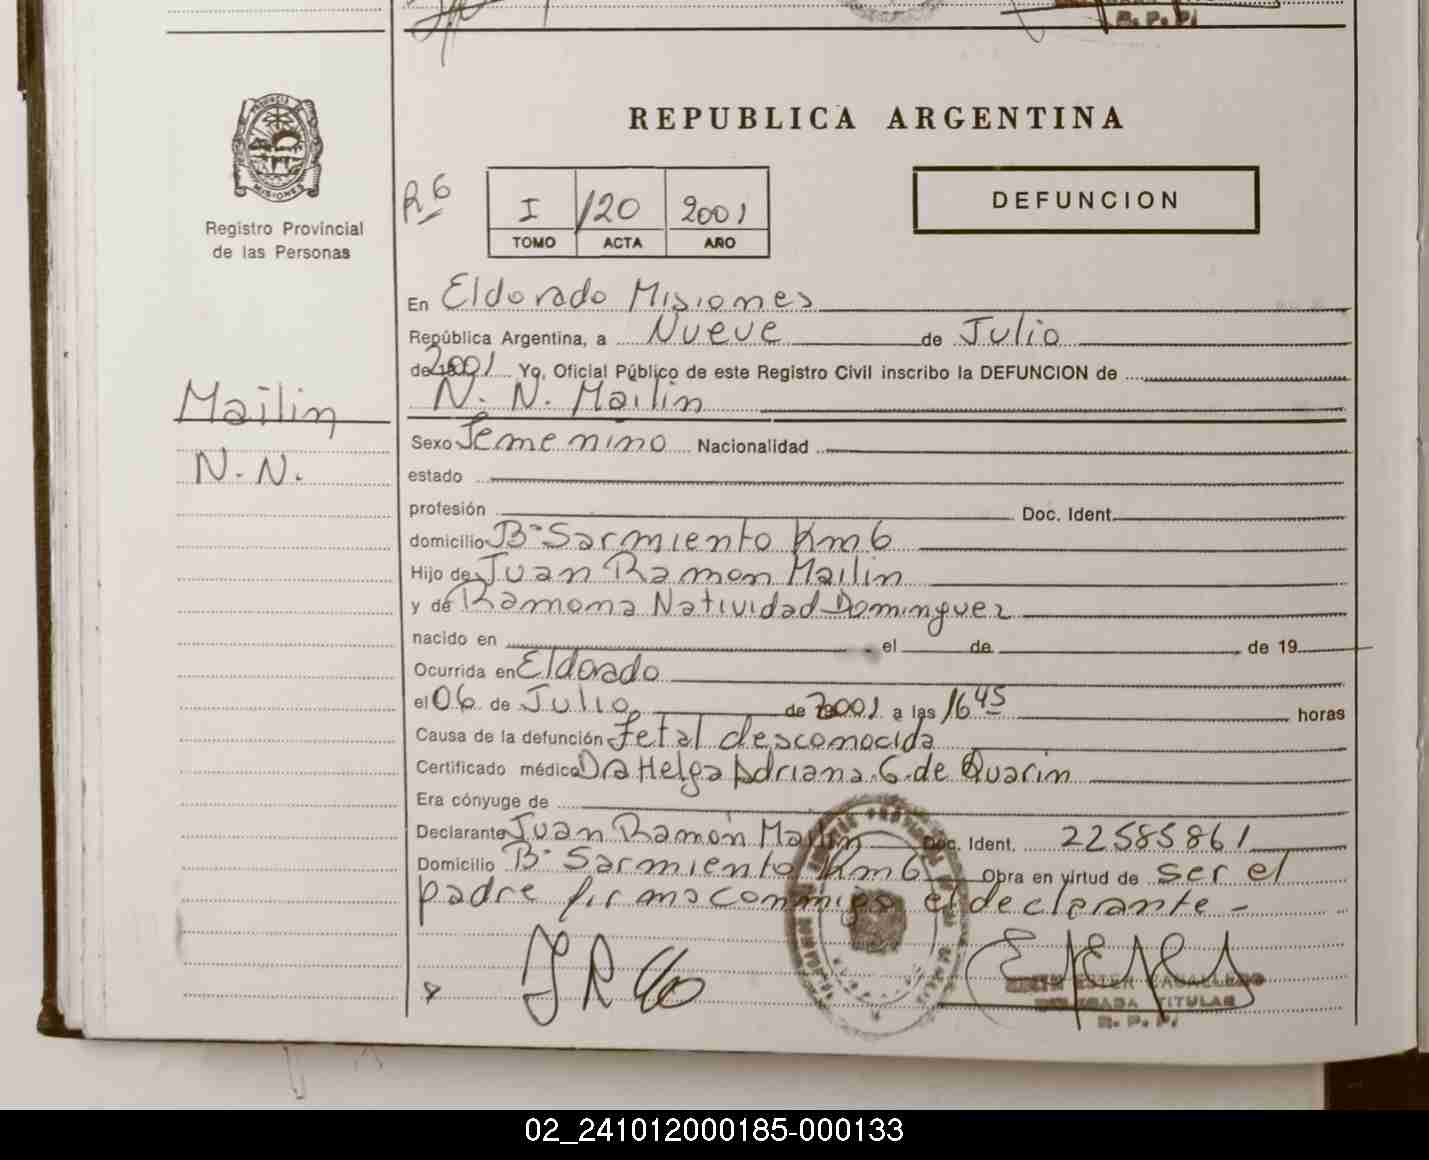 R. P. P.
REPUBLICA ARGENTINA
PROVINCIA DE MISIONES
Registro Provincial
de las Personas
R 6
I 120 2001
TOMO ACTA AÑO
DEFUNCION
En Eldorado Misiones
República Argentina, a Nueve de Julio
de 2001 Yo, Oficial Público de este Registro Civil inscribo la DEFUNCION de
N. N. Mailin
Mailin
N. N.
Sexo Femenino Nacionalidad
estado
profesión Doc. Ident.
domicilio Bº Sarmiento Km 6
Hijo de Juan Ramon Mailin
y de Ramona Natividad Dominguez
nacido en el de de 19
Ocurrida en Eldorado
el 06 de Julio de 2001 a las 16 45 horas
Causa de la defunción Fetal desconocida
Certificado médico Dra Helga Adriana G. de Quarin
Era cónyuge de
Declarante Juan Ramón Mailin Doc. Ident. 22585861
Domicilio Bº Sarmiento Km 6 Obra en virtud de ser el
padre firma conmigo el declarante -
ESTER CABALLERO
DELEGADA TITULAR
R. P. P.
02_241012000185-000133